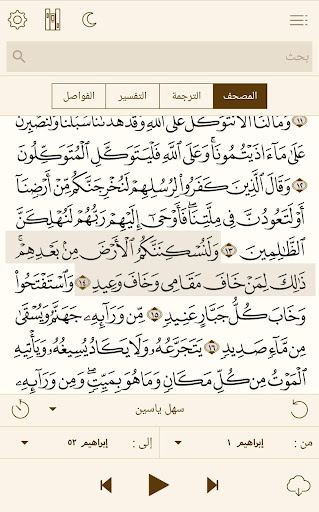 بحث
المصحف
الترجمة
التفسير
الفواصل
١١ وَمَا لَنَا أَلَّا نَتَوَكَّلَ عَلَى اللَّهِ وَقَدْ هَدَىٰنَا سُبُلَنَا وَلَنَصْبِرَنَّ
عَلَىٰ مَا ءَاذَيْتُمُونَا وَعَلَى اللَّهِ فَلْيَتَوَكَّلِ الْمُتَوَكِّلُونَ
١٢ وَقَالَ الَّذِينَ كَفَرُوا لِرُسُلِهِمْ لَنُخْرِجَنَّكُم مِّنْ أَرْضِنَا
أَوْ لَتَعُودُنَّ فِي مِلَّتِنَا فَأَوْحَىٰ إِلَيْهِمْ رَبُّهُمْ لَنُهْلِكَنَّ
الظَّالِمِينَ ١٣ وَلَنُسْكِنَنَّكُمُ الْأَرْضَ مِن بَعْدِهِمْ
ذَٰلِكَ لِمَنْ خَافَ مَقَامِي وَخَافَ وَعِيدِ ١٤ وَاسْتَفْتَحُوا
وَخَابَ كُلُّ جَبَّارٍ عَنِيدٍ ١٥ مِّن وَرَائِهِ جَهَنَّمُ وَيُسْقَىٰ
مِن مَّاءٍ صَدِيدٍ ١٦ يَتَجَرَّعُهُ وَلَا يَكَادُ يُسِيغُهُ وَيَأْتِيهِ
الْمَوْتُ مِن كُلِّ مَكَانٍ وَمَا هُوَ بِمَيِّتٍ وَمِن وَرَائِهِ
سهل ياسين
من: إبراهيم ١ إلى: إبراهيم ٥٢